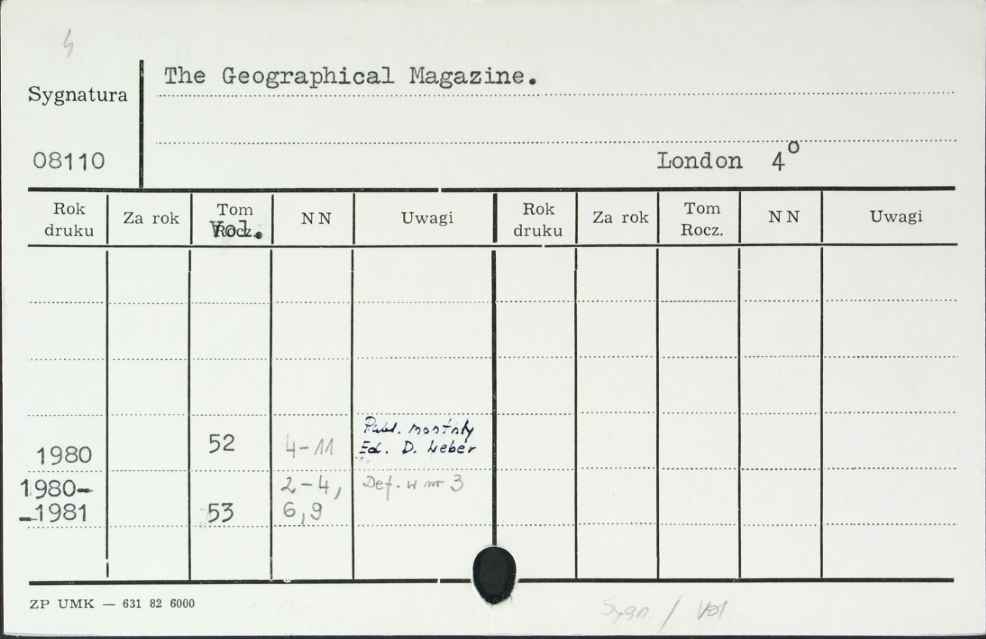 4
The Geographical Magazine.
Sygnatura
08110
London 4º
Rok druku Za rok Tom Rocz. Vol. NN Uwagi Rok druku Za rok Tom Rocz. NN Uwagi
Publ. monthly
1980 52 4-11 Ed. D. Weber
1980- 2-4, Def. w nr 3
-1981 53 6,9
ZP UMK — 631 82 6000
Sygn / Vol